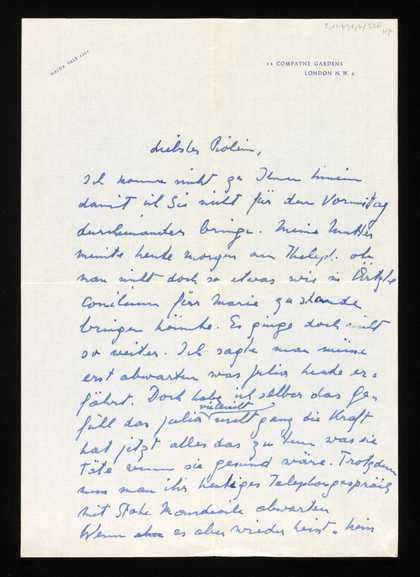 MAIDA VALE
14 COMPAYNE GARDENS
LONDON N.W. 6
Liebstes
Ich komme nicht zu Ihnen hinein
damit ich Sie nicht für den Vormittag
durcheinander bringe. Meine Mutter
meinte heute morgen am Teleph. ob
man nicht doch so etwas wie ein Ärzte
concilium für Marie zustande
bringen könnte. Es ginge doch nicht
so weiter. Ich sagte man müsse
erst abwarten was Julia heute er-
fährt. Doch habe ich selber das Ge-
fühl das Julia vieleicht nicht ganz die Kraft
hat jetzt alles das zu tun was sie
täte wenn sie gesund wäre. Trotzdem
muss man ihr heutiges Telephongespräch
mit abwarten
Wenn es aber wieder heist. kein